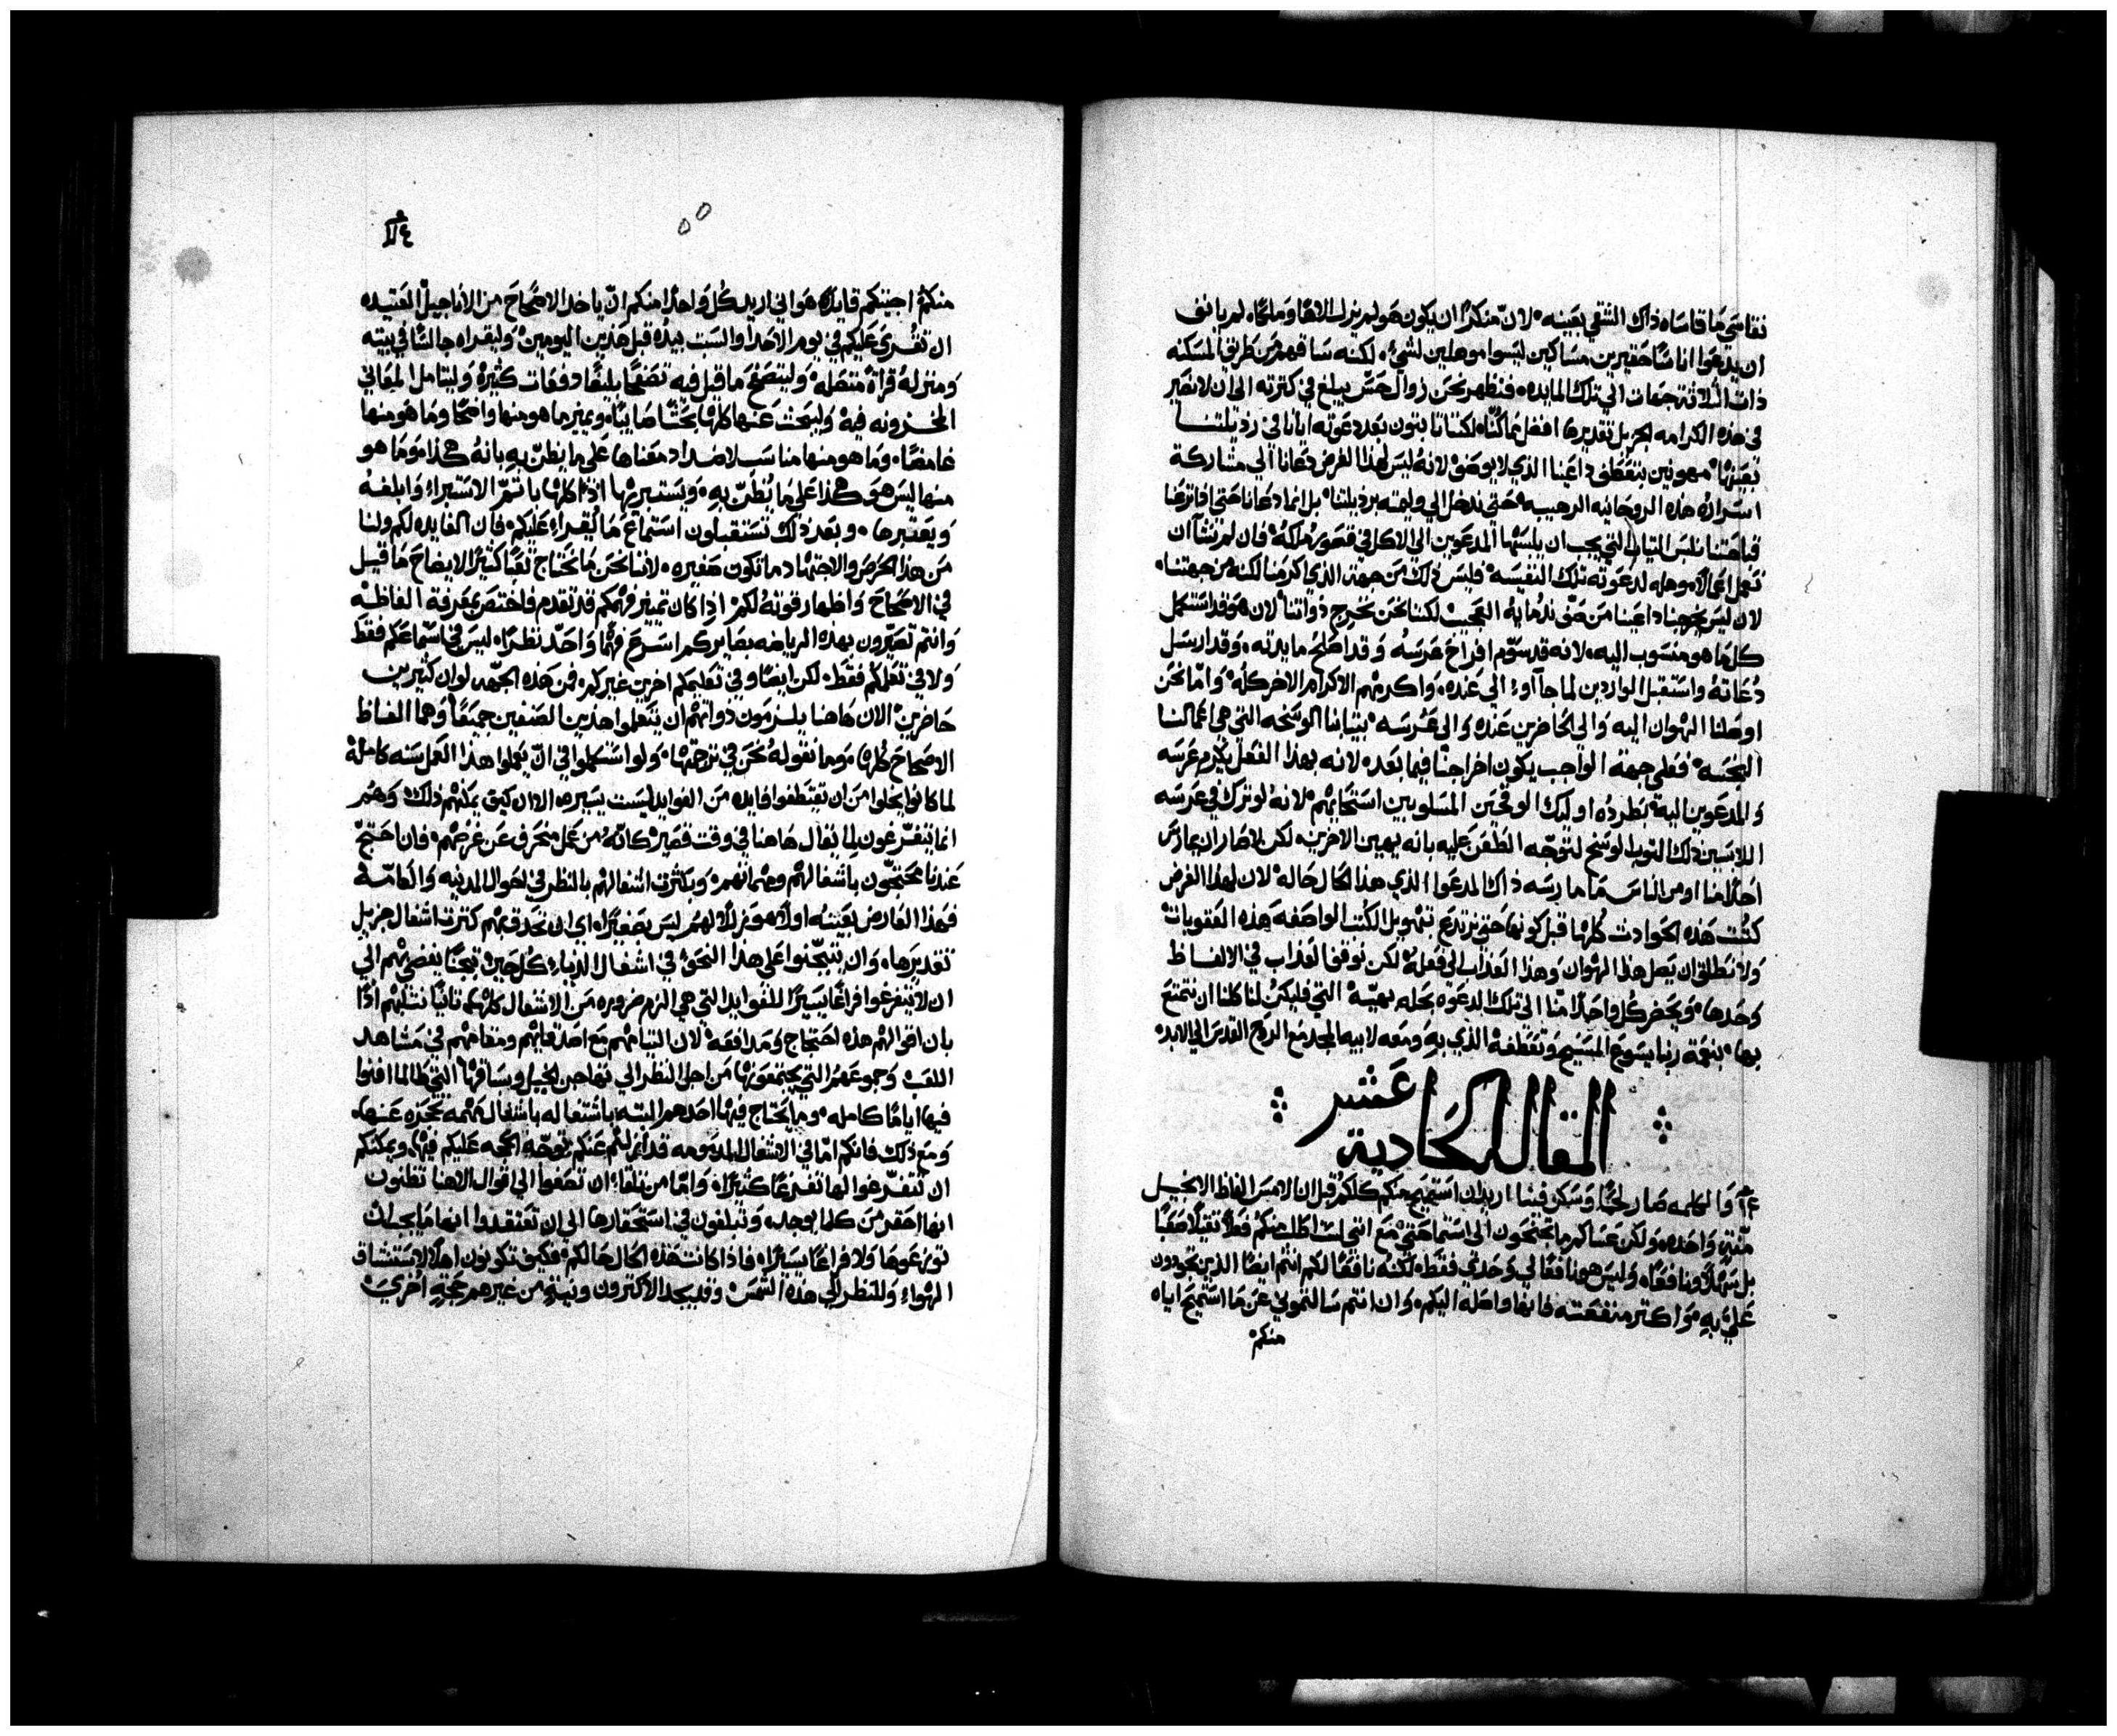 نقاسي ما قاساه ذاك الشقي بعينه لان منكرًا ان يكون هو لم يزل الاهًا وملكًا لم يانف
ان يدعوا اناسًا حقيرين مساكين ليسوا موهلين لشيء لكنه ساقهم من طريق المسكنه
ذات الثلاثة جهات الي تلك المايده فنظهر نحن زوال حس يبلغ في كثرته الي ان لا نصير
في هذه الكرامه الجزيل تقديرها افضل مما كنا لكننا ثابتون بعد دعوته ايانا في رذيلتنا
بعينها داعينا الذي لا يوصف لانه ليس لهذا الغرض دعانا الي مشاركة
اسراره هذه الروحانيه الرهيبه حتي ندخل الي وليمته برذيلتنا بل انما دعانا حتي اذا نزعنا
قباحتنا نلبس الثياب التي يجب ان يلبسها المدعوين الي الاكل في قصور ملكه فان لم نشآ ان
نعمل اعمالا موهله لدعوته تلك النفيسه فليس ذلك من جهة الذي اكرمنا لكنه من جهتنا
لان ليس يخرجنا داعينا من صف ندمايه العجيب لكننا نحن نخرج ذواتنا لان هو قد استكمل
كل ما هو منسوب اليه لانه قد سوّم افراح عرسه وقد اصلح مايدته وقد ارسل
دعاته واستقبل الواردين لما جاآوا الي عنده واكرمهم الاكرام الاخر كله واما نحن
اوصلنا الهوان اليه والي الحاضرين عنده والي عرسه بثيابنا الوسخه التي هي اعمالنا
النجسه فعلي جهة الواجب يكون اخراجنا فيما بعد لانه بهذا الفعل يكرم عرسه
والمدعوين اليه بطرده اوليك الوقحين المسلوبين استحياهم لانه لو ترك في عرسه
اللابسين ذلك الثوب الوسخ لتوجّه الطعن عليه بانه يهين الاخرين لكن لا صار ان يمارس
احدًا منا او من الناس ما مارسه ذاك المدعوا الذي هذا الحال حاله لان لهذا الغرض
كتبت هذه الحوادث كلها قبل كونها حتي نرتدع بتهويل الكتب الواصفه هذه العقوبات
ولا نطلق ان يصل هذا الهوان وهذا العذاب الي فعله لكن نوقف العذاب في الالفاظ
وحدها ويحضر كل واحد منّا الي تلك الدعوه بحله بهيّه التي فليكن لنا كلنا ان نتمتع
بها بنعمة ربنا يسوع المسيح وتعطفه الذي به ومعه لابيه المجد مع الروح القدس الي الابد
المقاله الحادية عشر
والكلمه صار لحمًا وسكن فينا اريد ان استميح منكم كلكم قبل ان الامس الفاظ الانجيل
منّه واحده ولكن عساكم ما تجنحون الي استماحتي مع انني لست اطلب منكم فعلا ثقيلًا صعبًا
بل سهلا ونافعًا وليس هو نافعًا لي وحدي فقط لكنه نافعًا لكم انتم ايضًا الذين تجودون
عليّ به واكثر منفعته فانها واصله اليكم وان انتم سالتموني عن ما استميح اياه
منكم
منكم اجبتكم قايلا هو اني اريد كل واحدا منكم ان ياخذ الاصحاح من الاناجيل العتيده
ان تقري عليكم في يوم الاحد او السبت بيده قبل هذين اليومين وليقراه جالسًا في بيته
ومنزله قراة متصله وليتصفح ما قيل فيه تصفحًا بليغًا دفعات كثيره وليتامل المعاني
المخزونه فيه وليبحث عنها كلها بحثًا صايبًا ويميز ما هو منها واضحًا وما هو منها
غامضًا وما هو منها مناسب لاضداد معناها علي ما يظنّ به بانه هكذا وما هو
منها ليس هو هكذا علي ما يُظنّ به ويستبريها اذًا كلها باتمّ الاستبراء وابلغه
ويعتبرها وبعد ذلك تستقبلون استماع ما يُقراء عليكم فان الفايده لكم ولنا
من هذا الحرص والاجتهاد ما تكون صغيره لاننا نحن ما نحتاج تعبًا كثيرًا لايضاح ما قيل
في الاصحاح واظهار قوته لكم اذا كان تمييز فهمكم قد تقدم فاختص بمعرفة الفاظه
وانتم تصيّرون بهذه الرياضه بصايركم اسرع فهمًا واحدّ نظرًا ليس في استماعكم فقط
ولا في تعلمكم فقط لكن ايضًا وفي تعليمكم اخرين غيركم فمن هذه الجهه لو ان كثيرين
حاضرين الان هاهنا يلتزمون ذواتهم ان يتعلموا هذين الصنفين جميعًا وهما الفاظ
الاصحاح كلها وما نقوله نحن في ترجمتها ولو استكملوا في ان يعملوا هذا العمل سنه كامله
لما كانوا يخلوا من ان يقتطفوا فايده من الفوايد ليست يسيره الا ان كيف يمكنهم ذلك وهم
انما يتفرّغون لما يقال هاهنا في وقت قصير كانّه من عمل منحرف عن غرضهم فان احتجّ
عندنا محتجّون باشغالهم وهماتهم وبكثرت اشغالهم بالنظر في احوال المدنيه والعامّه
فهذا العارض بعينه اولا هو زللا لهم ليس صغيرًا اي ان تحدق بهم كثرت اشغال جزيل
تقديرها وان يتجّنوا علي هذا النحو في اشغال الدنيا كل حين تجنّا يفضي بهم الي
ان لا يتفرغوا فراغًا يسيرًا للفوايد التي هي الزم ضروره من الاشغال كلها ثانيًا نثلبهم اذًا
بان اقوالهم هذه احتجاج ومدافعه لان التيامهم مع اصدقايهم ومقامهم في مشاهد
اللعب وجموعهم التي يجتمعونها من اجل النظر الي تهاجن الخيل وسباقها التي طالما افنوا
فيها ايامًا كامله وما يحتاج فيها احدهم البته باشتغاله باشغال مهمه تحجزه عنها
ومع ذلك فانكم امّا في الاشغال المذمومه
ان تتفرّغوا لها تفرغًا كثيرًا وامّا من تلقاء ان تصغوا الي اقوال الاهنا تظنون
انها احقر من كلما يوجد وتبلغون في استحقارها الي ان تعتقدوا انها ما يجب ان
توزعوها ولا فراغًا يسيرًا فاذا كانت هذه الحال حالكم فكيف تكونون اهلًا لاستنشاق
الهواء وللنظر الي هذه الشمس وقد يجد الاكثرون ونيةٍ من غيرهم بحجّةٍ اخري